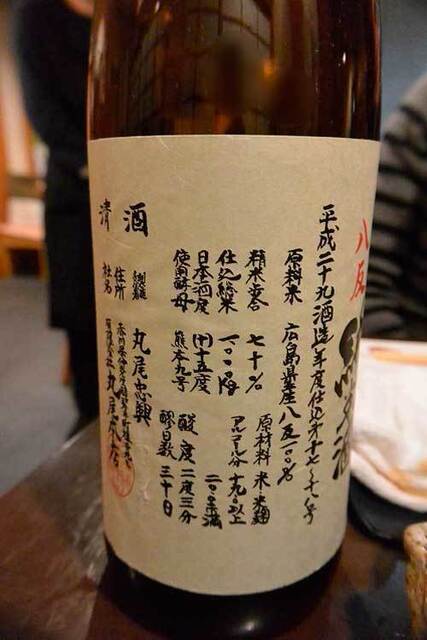 八反
純米酒
平成二十九酒造年度仕込み十七、十八号
原料米 広島県産八反一〇〇%
精米歩合 七十% 原材料 米 米麹
仕込総米 一〇〇〇kg アルコール分 十九.〇以上
二〇.〇未満
日本酒度 (+)十五度 酸度 二度三分
使用酵母 熊本九号 醪日数 三十日
清酒
製造 丸尾忠興
住所
社名 有限会社丸尾本店